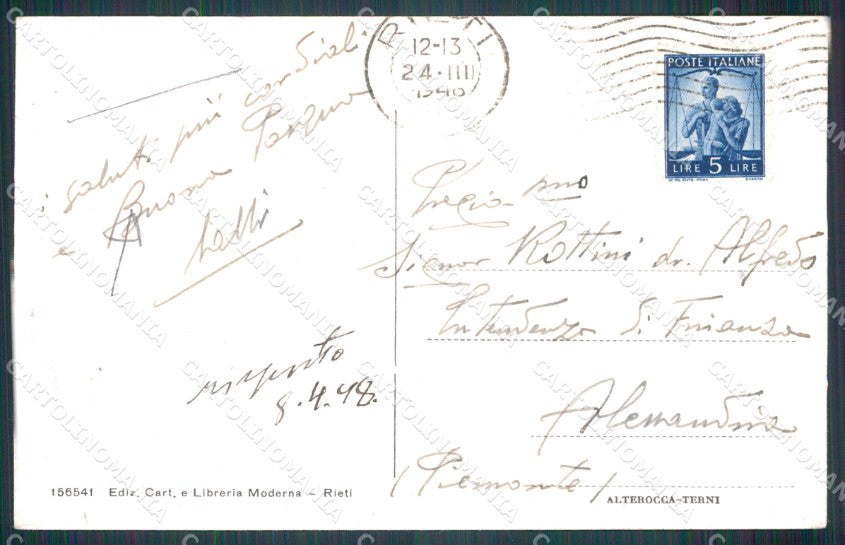 RIETI
12-13
24·III
1948
POSTE ITALIANE
LIRE 5 LIRE
i saluti più cordiali
e Buona Pasqua
risposto
8.4.48.
Pregia mo
Signor Rottini dr. Alfredo
Intendenza di Finanza
Alessandria
(Piemonte)
156541 Ediz. Cart. e Libreria Moderna - Rieti
ALTEROCCA-TERNI
CARTOLINOMANIA